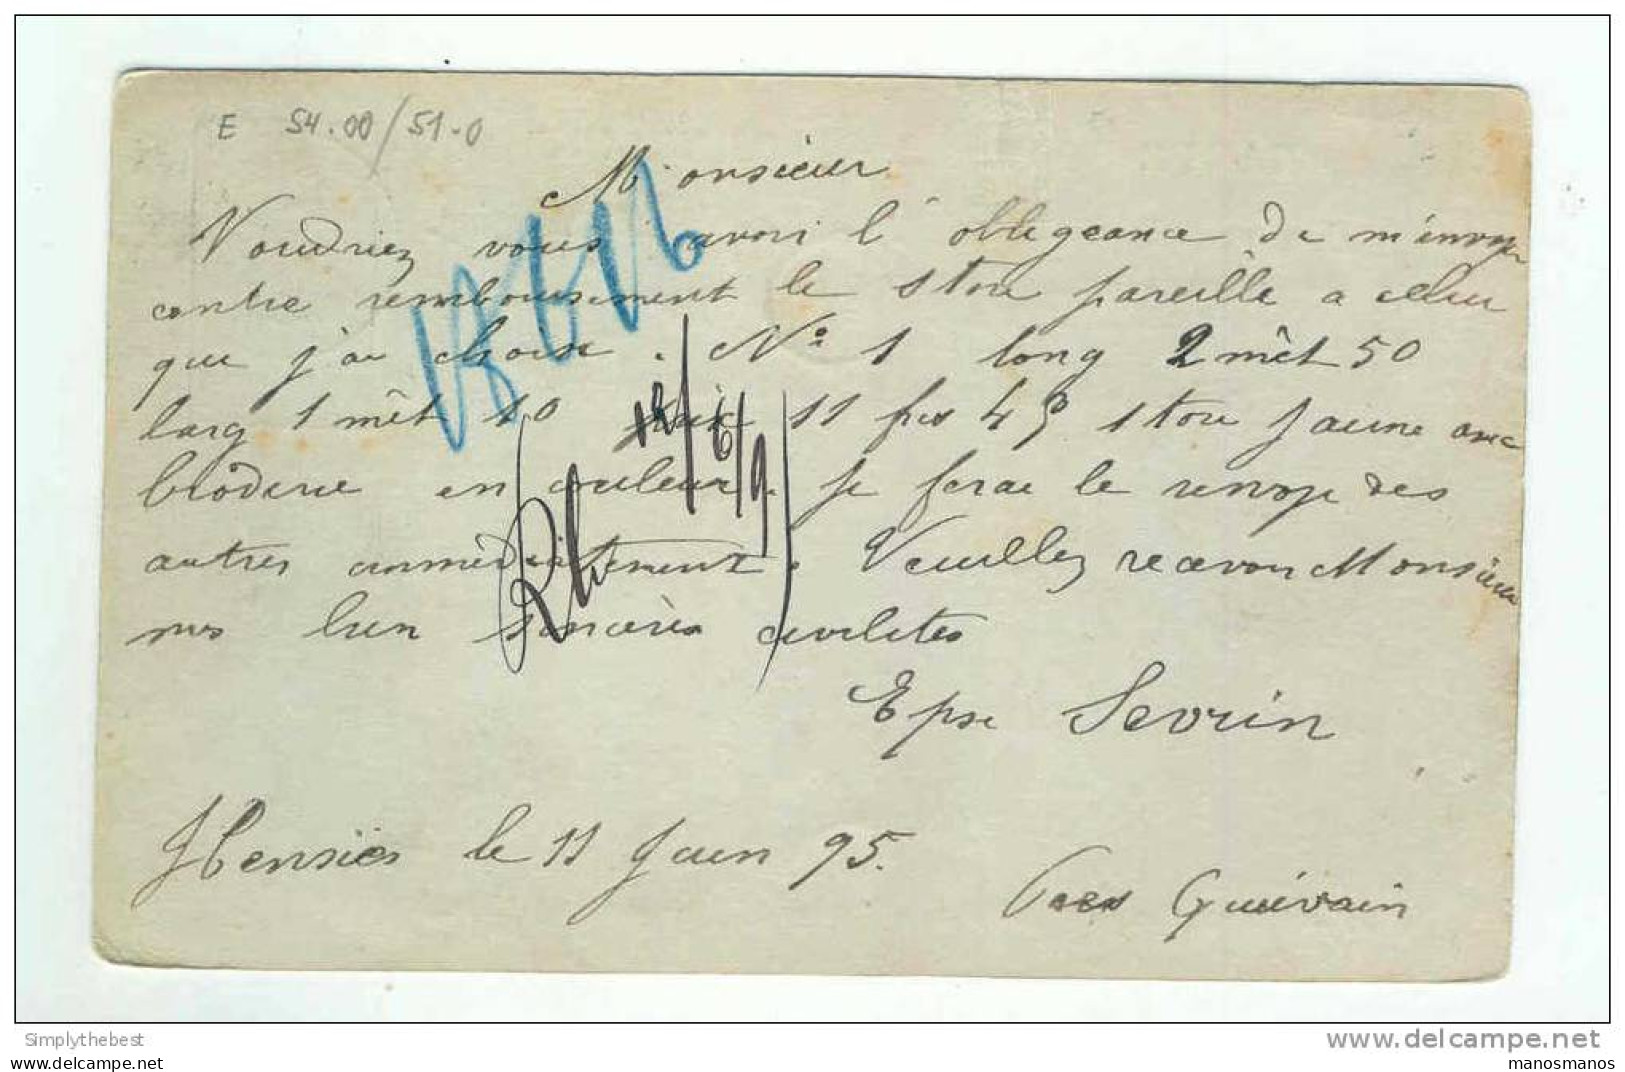 E 54.00/51.0
Monsieur
Voudriez vous avoir l'obligeance de m'envoyer
contre remboursement le store pareille a celui
que j'ai choisi. Nº 1 long 2 mèt 50
larg 1 mèt 10 prix 11 frs 45 store jaune avec
brôderie en couleur. je ferai le renvoye des
autres immèdiatement. Veuillez recevoir Monsieur
mes bien sincères civilités
Epse Sevrin
Hensies le 11 Juin 95.
Quiévrain
12/6/9
Simplythebest
www.delcampe.net
manosmanos